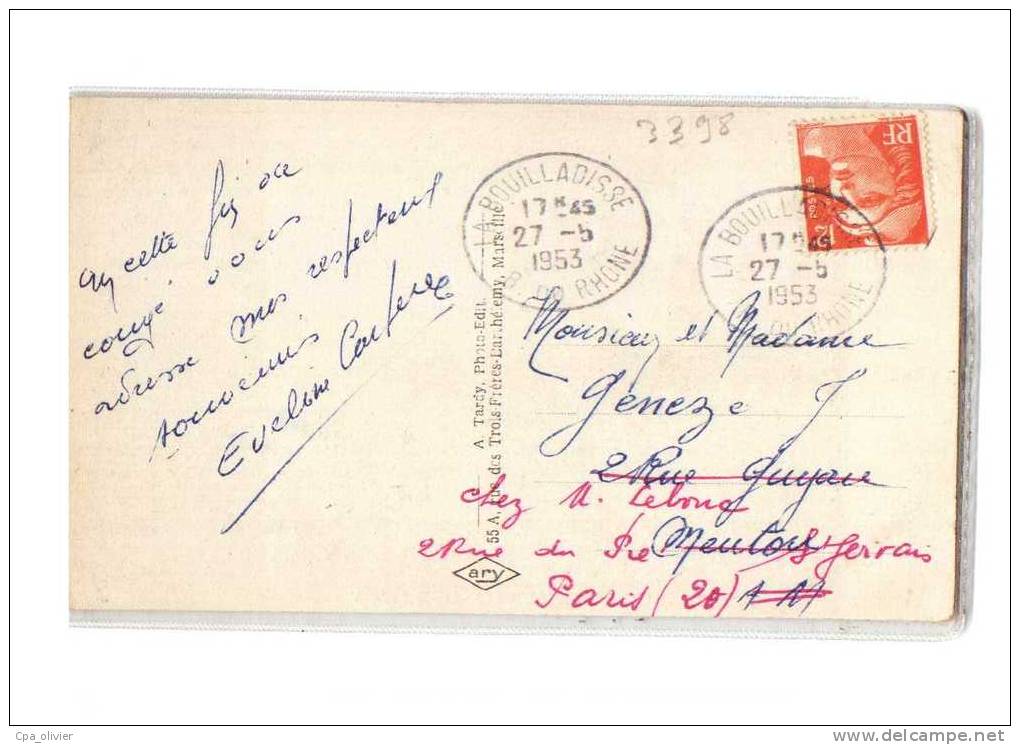 3398
RF
POSTES
LA BOUILLADISSE
17 H 45
27 -5
1953
B. DU RHONE
LA BOUILLADISSE
17 H 45
27 -5
1953
DU RHONE
cette fin de
congé vous
adresse mes respectueux
souvenirs
Eveline
A. Tardy, Photo-Edit.
55 A, rue des Trois Frères-Barthélemy, Marseille
ary
Monsieur et Madame
Geneze J
2 Rue Guyau
chez M. Lebouc
Menton
2 Rue du Pré St Gervais
Paris (20) A M
Cpa_olivier
www.delcampe.net